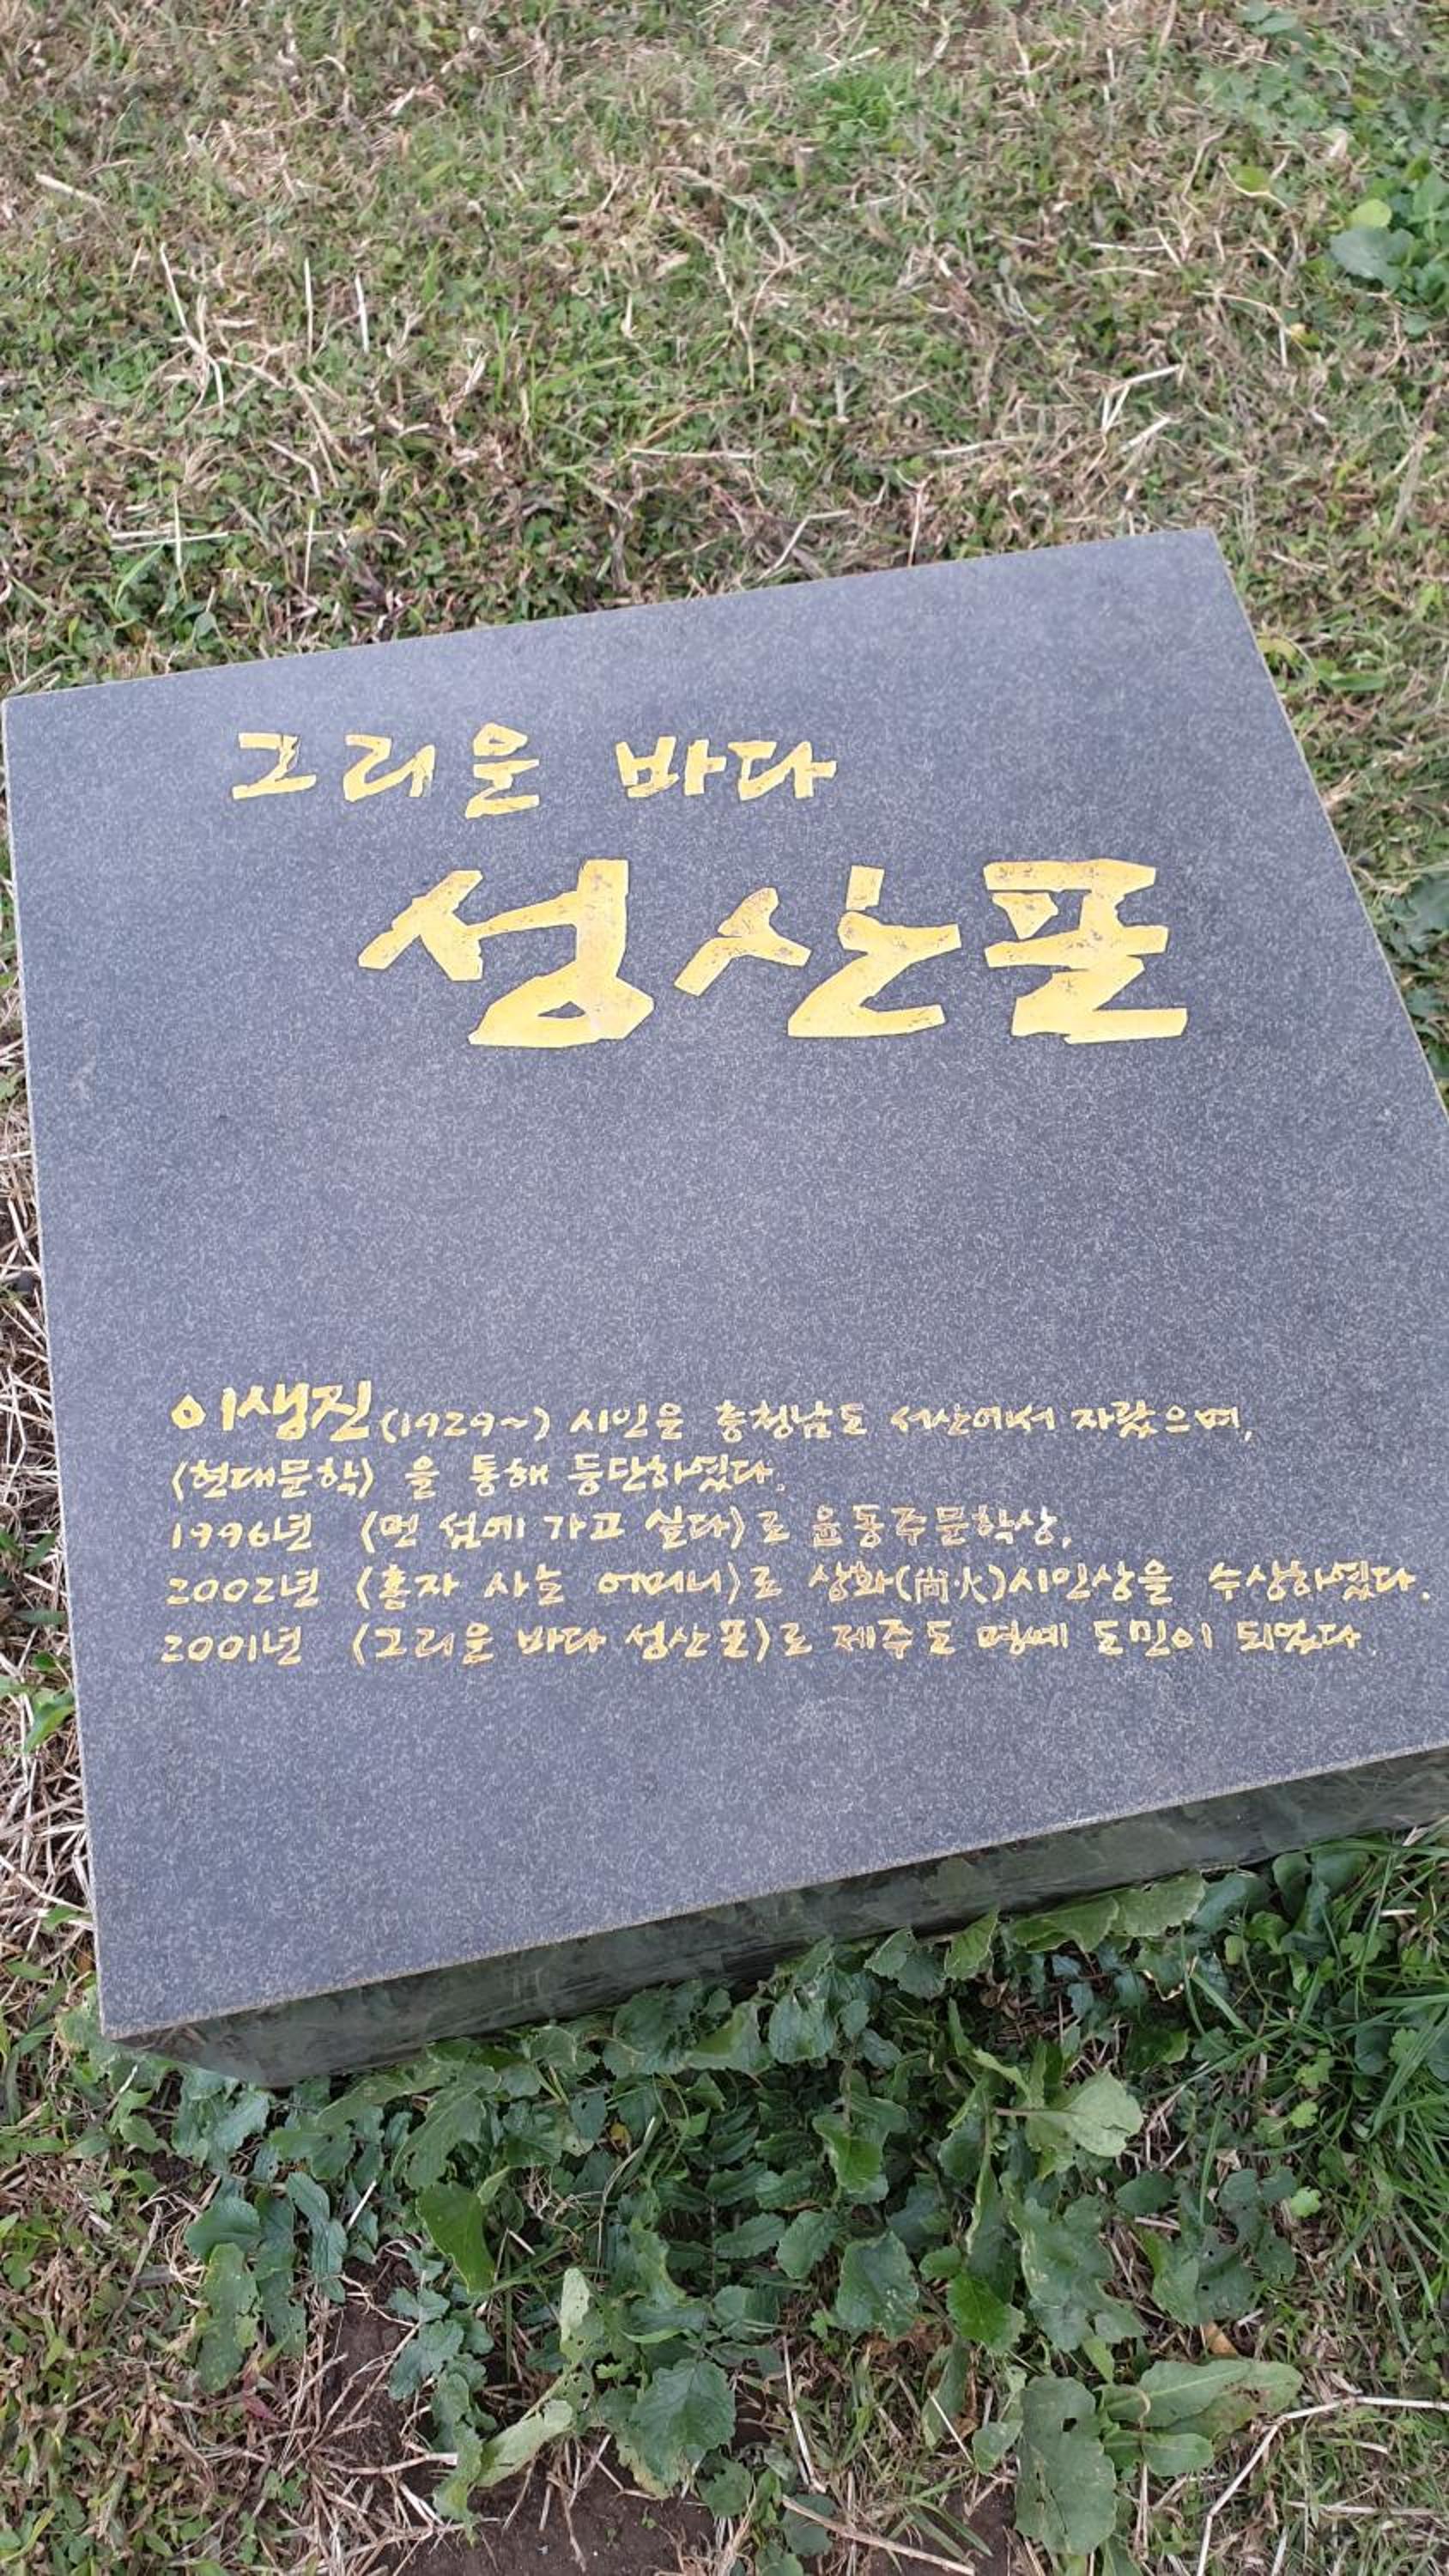 그리운 바다
성산포
이생진(1929~) 시인은 충청남도 서산에서 자랐으며,
〈현대문학〉을 통해 등단하였다.
1996년 〈먼 섬에 가고 싶다〉로 윤동주문학상,
2002년 〈혼자 사는 어머니〉로 상화(尙火)시인상을 수상하였다.
2001년 〈그리운 바다 성산포〉로 제주도 명예 도민이 되었다.